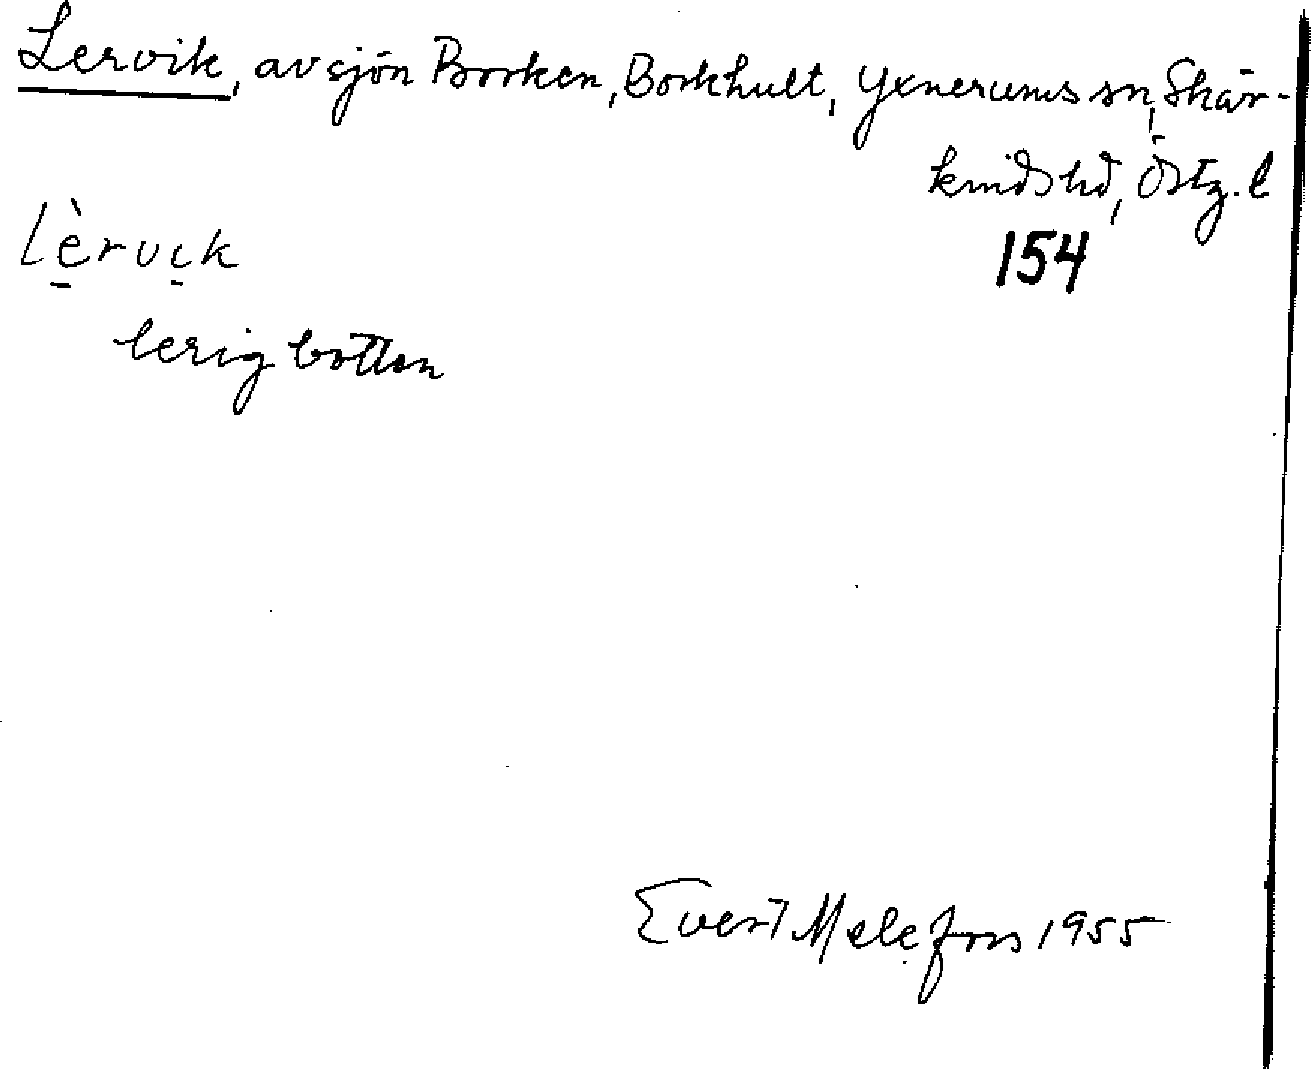 Lervik, av sjön Borken, Borkhult, Yxnerums sn, Skär-
kinds hd, Östg. l
Lèrvik
154
lerig botten
Evert Melefors 1955